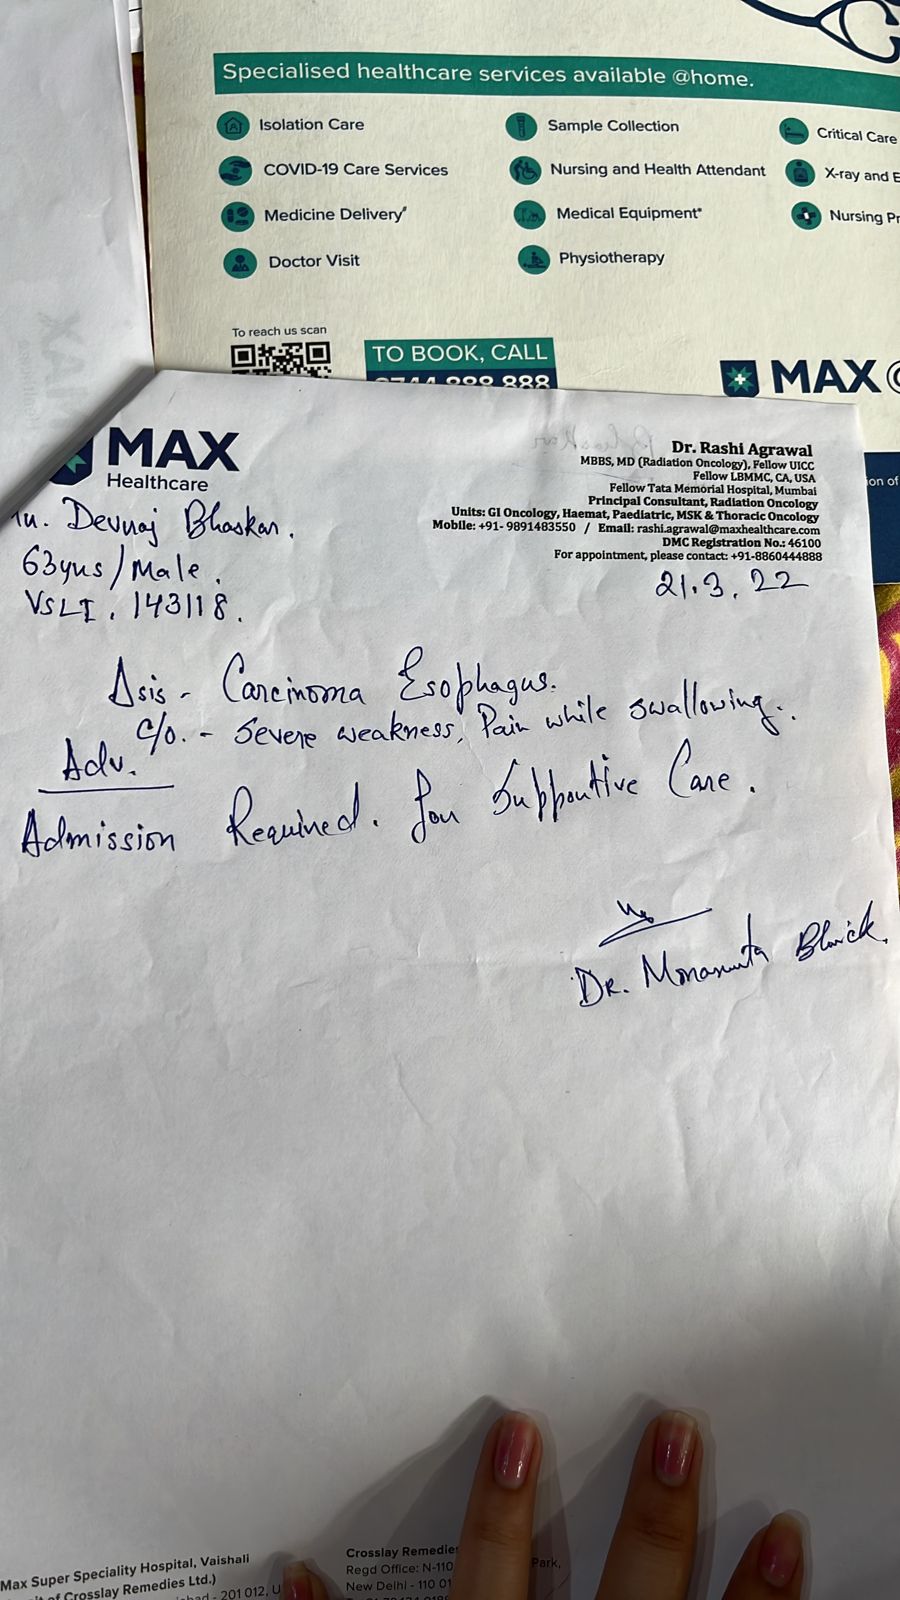 Specialised healthcare services available @home.
Isolation Care
Sample Collection
Critical Care
COVID-19 Care Services
Nursing and Health Attendant
X-ray and E
Medicine Delivery#
Medical Equipment*
Nursing Pr
Doctor Visit
Physiotherapy
To reach us scan
TO BOOK, CALL
888 888
MAX @
ion of
MAX
Healthcare
Dr. Rashi Agrawal
MBBS, MD (Radiation Oncology), Fellow UICC
Fellow LBMMC, CA, USA
Fellow Tata Memorial Hospital, Mumbai
Principal Consultant, Radiation Oncology
Units: GI Oncology, Haemat, Paediatric, MSK & Thoracic Oncology
Mobile: +91- 9891483550 / Email: rashi.agrawal@maxhealthcare.com
DMC Registration No.: 46100
For appointment, please contact: +91-8860444888
Devraj Bhaskar.
63yrs/Male.
VSLI. 143118.
21.3.22
Δsis - Carcinoma Esophagus.
c/o. - Severe weakness, Pain while swallowing..
Adv.
Admission Required. for Supportive Care.
Dr.
Max Super Speciality Hospital, Vaishali
of Crosslay Remedies Ltd.)
bad - 201 012, U
Crosslay Remedie
Regd Office: N-110
Park,
New Delhi - 110 01